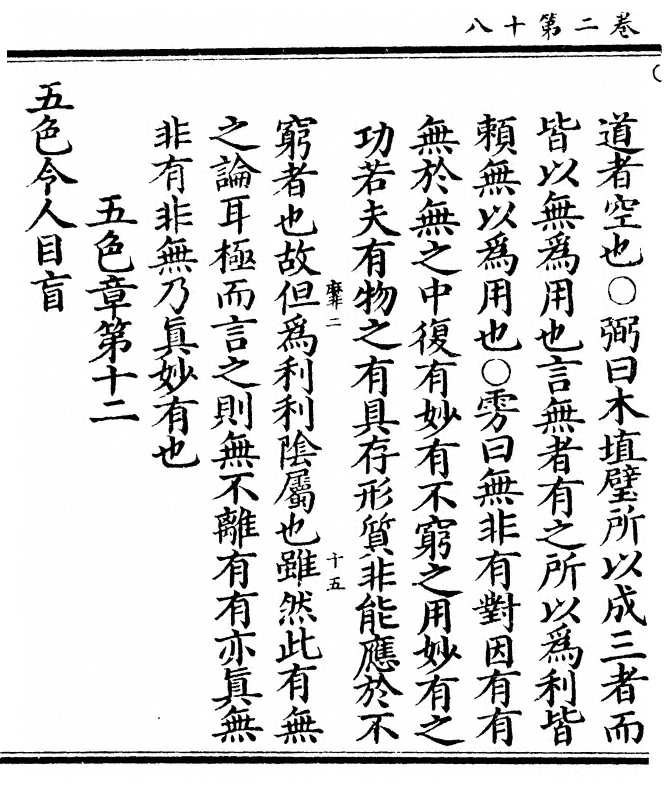 八十第二卷
道者空也○弼曰木埴壁所以成三者而
皆以無爲用也言無者有之所以爲利皆
賴無以爲用也○雱曰無非有對因有有
無於無之中復有妙有不窮之用妙有之
功若夫有物之有具存形質非能應於不
靡二
十五
窮者也故但爲利利陰屬也雖然此有無
之論耳極而言之則無不離有有亦眞無
非有非無乃眞妙有也
五色章第十二
五色令人目盲